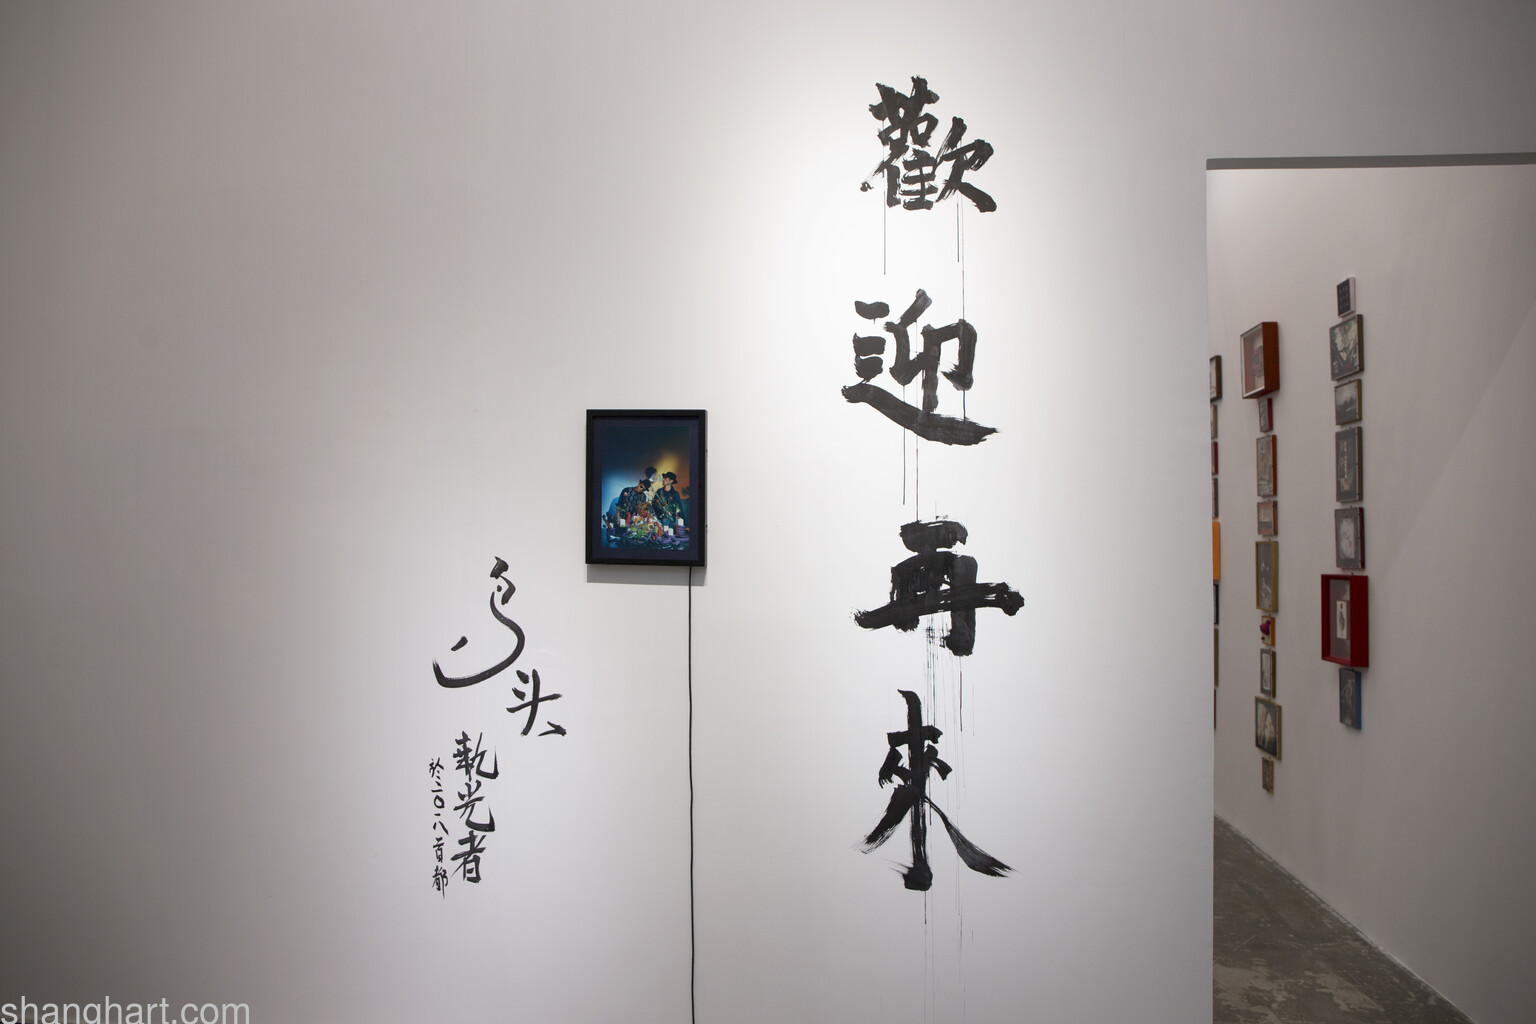 歡迎再來
鸟头
執光者
於二〇一八首都
shanghart.com